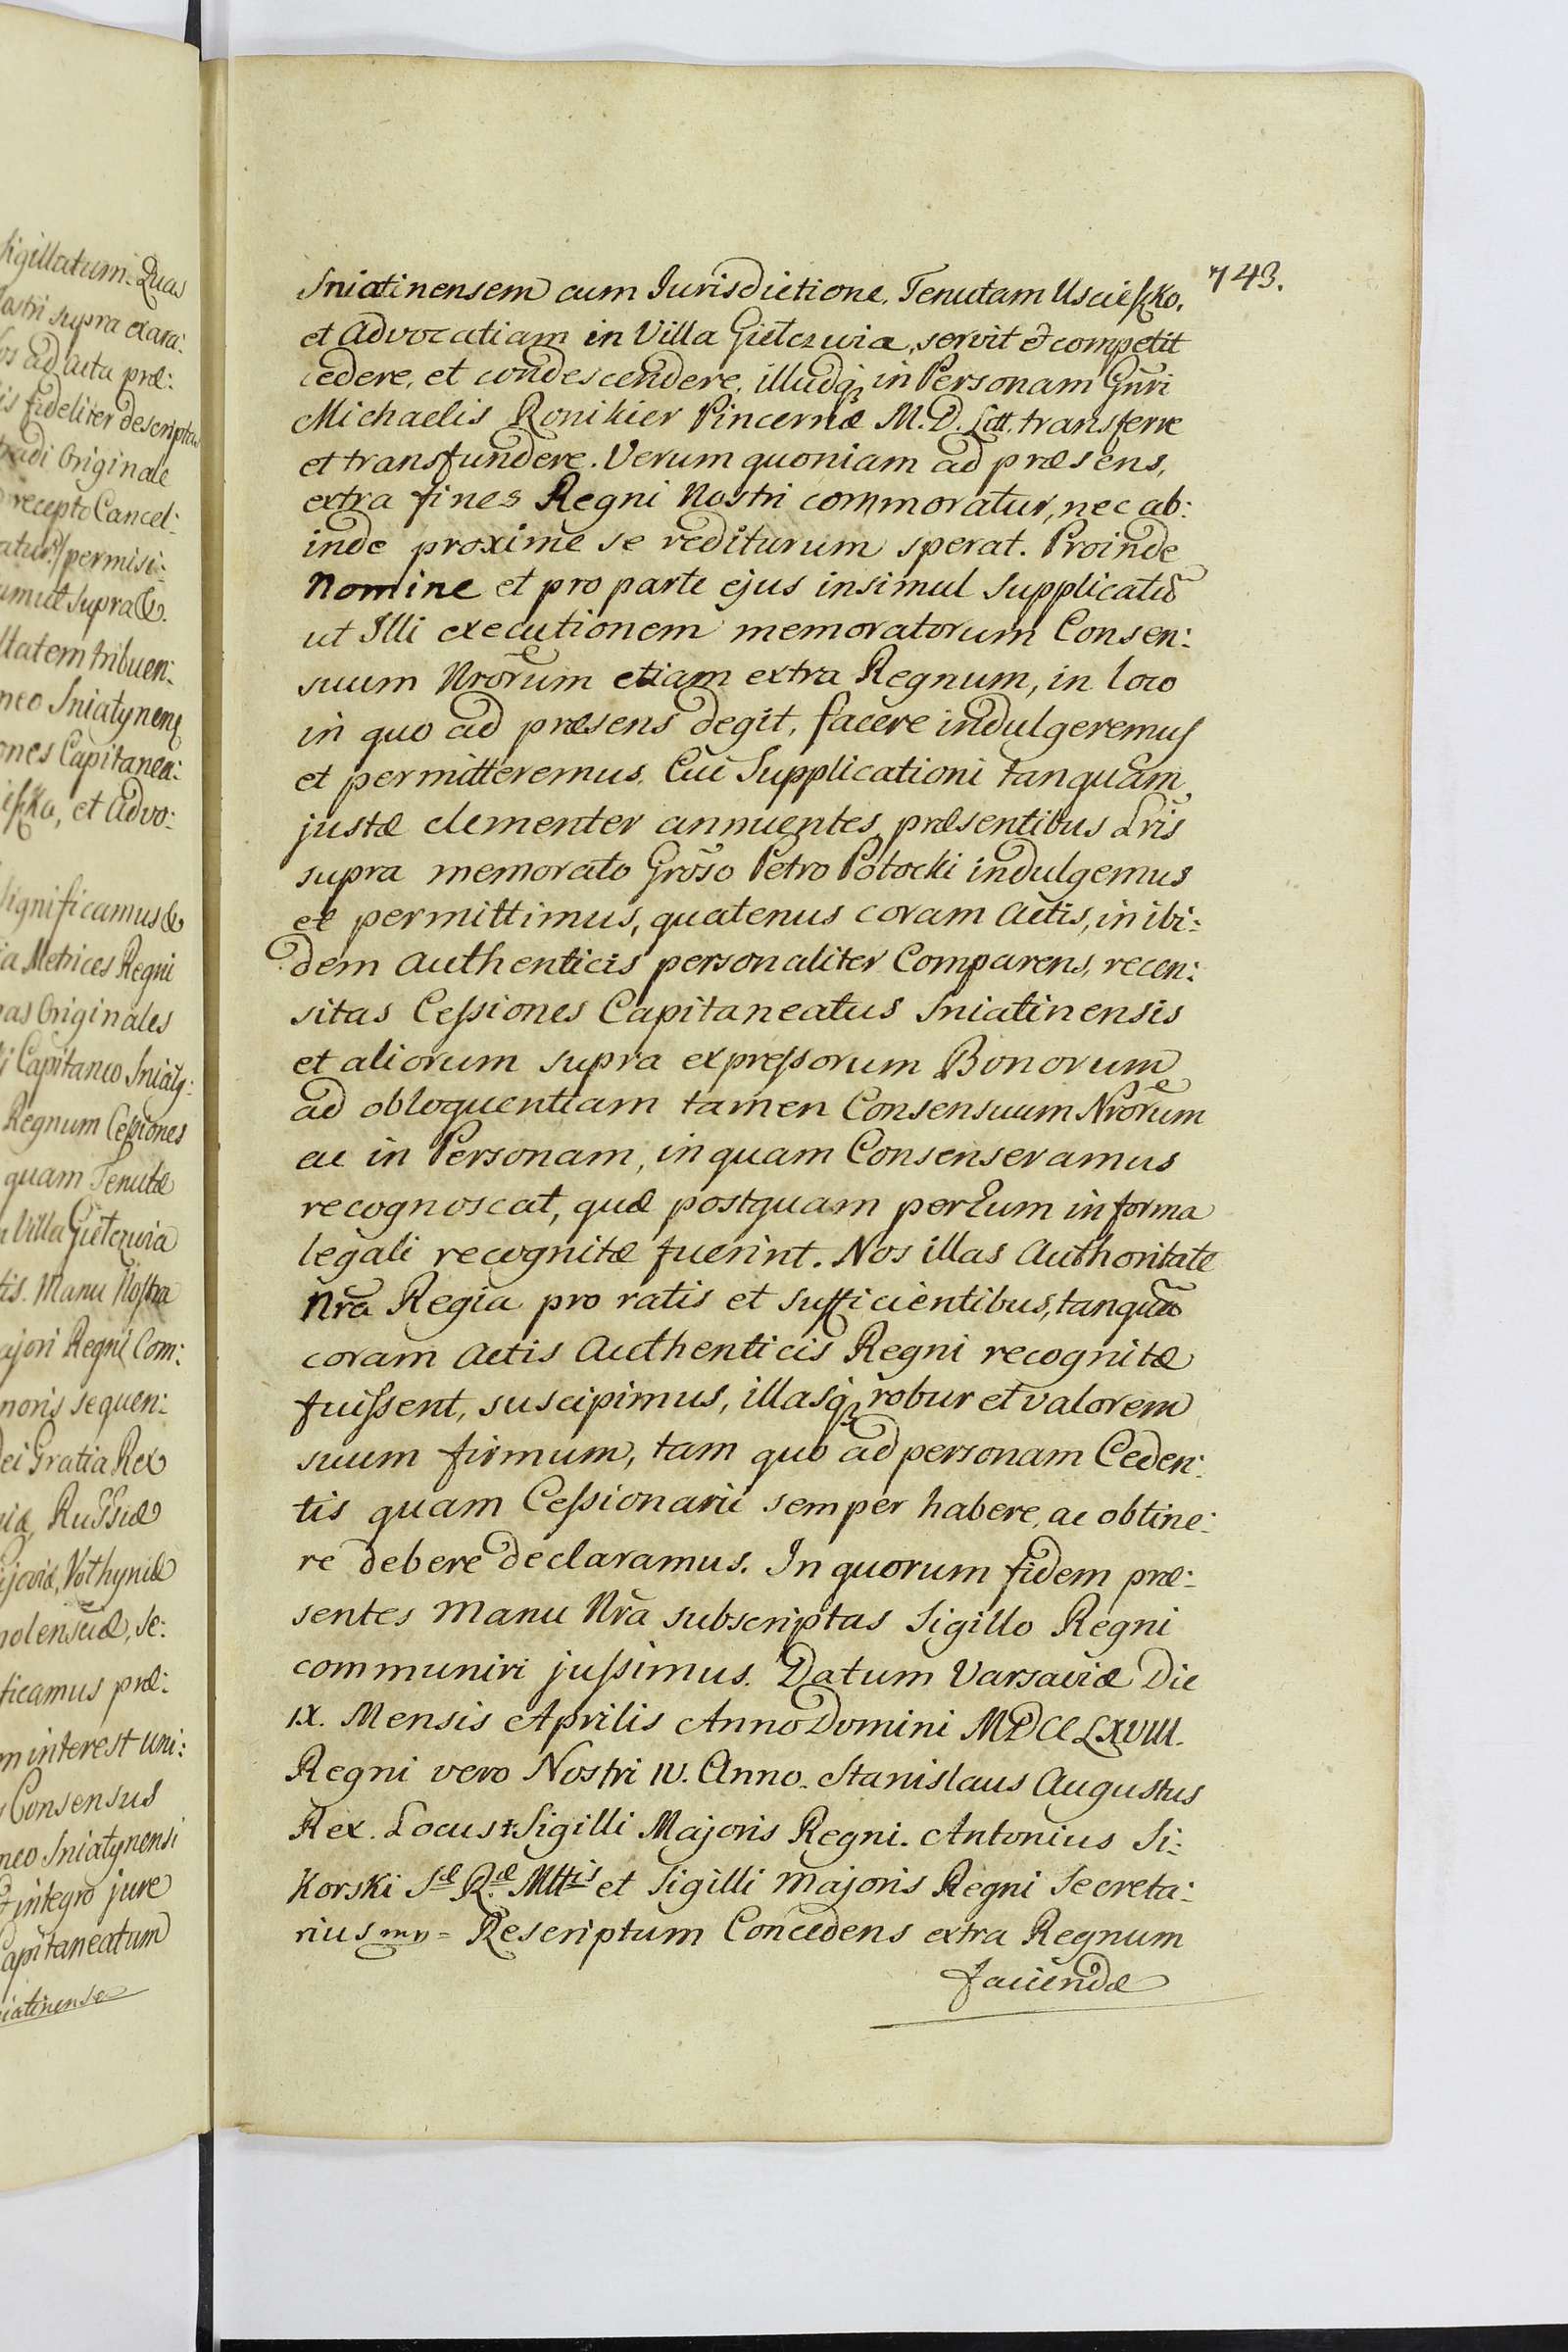 sigillatum. Quas
Nostri supra exara:
os ad Acta præ:
is fideliter descriptas
tradi Originale
recepto Cancel:
permisi:
umut supra &.
ltatem tribuen:
neo Sniatynens
ones Capitanea:
ießko, et Advo:
significamus &
ia Metrices Regni
nas Originales
i Capitaneo Sniaty:
Regnum Ceßiones
quam Tenutæ
Villa Giełczwia
tis. Manu Nostra
ajori Regni Com:
noris sequen:
Dei Gratia Rex
niæ, Russiæ
ijoviæ, Volhyniæ
nolensciæ, Se:
ficamus præ:
m interest uni:
Consensus
neo Sniatynensi
& integro jure
Capitaneatum
niatinense
743.
Sniatinensem cum Jurisdictione, Tenutam Uscießko,
et Advocatiam in Villa Giełczwia, servit & competit
cedere, et condescendere, illudq; in Personam Gñri
Michaelis Ronikier Pincernæ M. D. Litt. transferre
et transfundere. Verum quoniam ad præsens,
extra fines Regni Nostri commoratur, nec ab:
inde proxime se rediturum sperat. Proinde
Nomine et pro parte ejus insimul supplicatũ
ut Illi executionem memoratorum Consen:
suum Nrõrum etiam extra Regnum, in loco
in quo ad præsens degit, facere indulgeremus
et permitteremus. Cui Supplicationi tanquam
justæ clementer annuentes, præsentibus Lr̃is
supra memorato Gr̃oso Petro Potocki indulgemus
et permittimus, quatenus coram Actis, in ibi:
dem Authenticis personaliter Comparens, recen:
sitas Ceßiones Capitaneatus Sniatinensis
et aliorum supra expreßorum Bonorum
ad obloquentiam tamen Consensuum Nrõrum
ac in Personam, in quam Consenseramus
recognoscat, quæ postquam per Eum in forma
legali recognitæ fuerint. Nos illas Authoritate
Nrã Regia pro ratis et sufficientibus, tanquã
coram Actis Authenticis Regni recognitæ
fuißent, suscipimus, illasq; robur et valorem
suum firmum, tam quo ad personam Ceden:
tis quam Ceßionarii semper habere, ac obtine:
re debere declaramus. In quorum fidem præ:
sentes Manu Nrã subscriptas Sigillo Regni
communiri jußimus. Datum Varsaviæ Die
IX. Mensis Aprilis Anno Domini MDCCLXVIII.
Regni vero Nostri IV. Anno. Stanislaus Augustus
Rex. Locus ‡ Sigilli Majoris Regni. Antonius Si:
korski Sæ Ræ Mttis et Sigilli Majoris Regni Secreta:
rius mp = Rescriptum Concedens extra Regnum
faciendæ